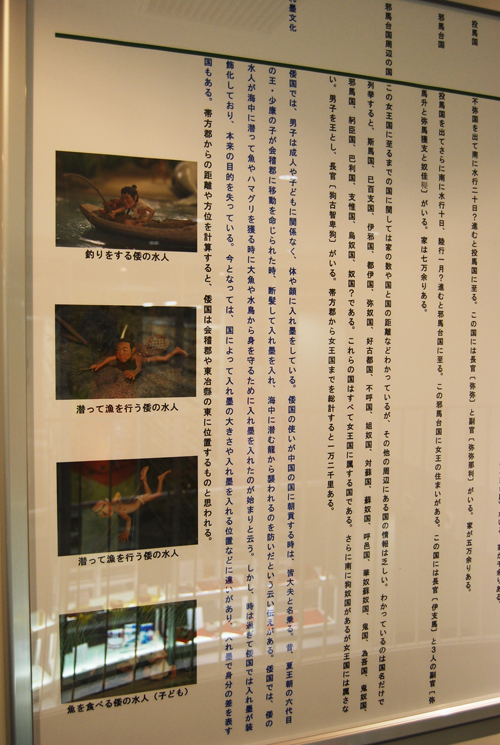 投馬国
不弥国を出て南に水行二十日?進むと投馬国に至る。この国には長官〔弥弥〕と副官〔弥弥那利〕がいる。家が五万余りある。
邪馬台国
投馬国を出てさらに南に水行十日、陸行一月?進むと邪馬台国に至る。この邪馬台国に女王の住まいがある。この国には長官〔伊支馬〕と3人の副官〔弥
馬升と弥馬獲支と奴佳鞮〕がいる。家は七万余りある。
邪馬台国周辺の国
この女王国に至るまでの国に関しては家の数や国と国の距離などわかっているが、その他の周辺にある国の情報は乏しい。わかっているのは国名だけで
列挙すると、斯馬国、巳百支国、伊邪国、都伊国、弥奴国、好古都国、不呼国、姐奴国、対蘇国、蘇奴国、呼邑国、華奴蘇奴国、鬼国、為吾国、鬼奴国、
邪馬国、躬臣国、巴利国、支惟国、烏奴国、奴国?である。これらの国はすべて女王国に属する国である。さらに南に狗奴国があるが女王国には属さな
い。男子を王とし、長官〔狗古智卑狗〕がいる。帯方郡から女王国までを総計すると一万二千里ある。
墨文化
倭国では、男子は成人や子どもに関係なく、体や顔に入れ墨をしている。倭国の使いが中国の国に朝貢する時は、皆大夫と名乗る。昔、夏王朝の六代目
の王・少康の子が会稽郡に移動を命じられた時、断髪して入れ墨を入れ、海中に潜む龍から襲われるのを防いだという云い伝えがある。倭国では、倭の
水人が海中に潜って魚やハマグリを獲る時に大魚や水鳥から身を守るために入れ墨を入れたのが始まりと云う。しかし、時は過ぎて倭国では入れ墨が装
飾化しており、本来の目的を失っている。今となっては、国によって入れ墨の大きさや入れ墨を入れる位置などに違いがあり、入れ墨で身分の差を表す
国もある。帯方郡からの距離や方位を計算すると、倭国は会稽郡や東冶縣の東に位置するものと思われる。
釣りをする倭の水人
潜って漁を行う倭の水人
潜って漁を行う倭の水人
魚を食べる倭の水人（子ども）